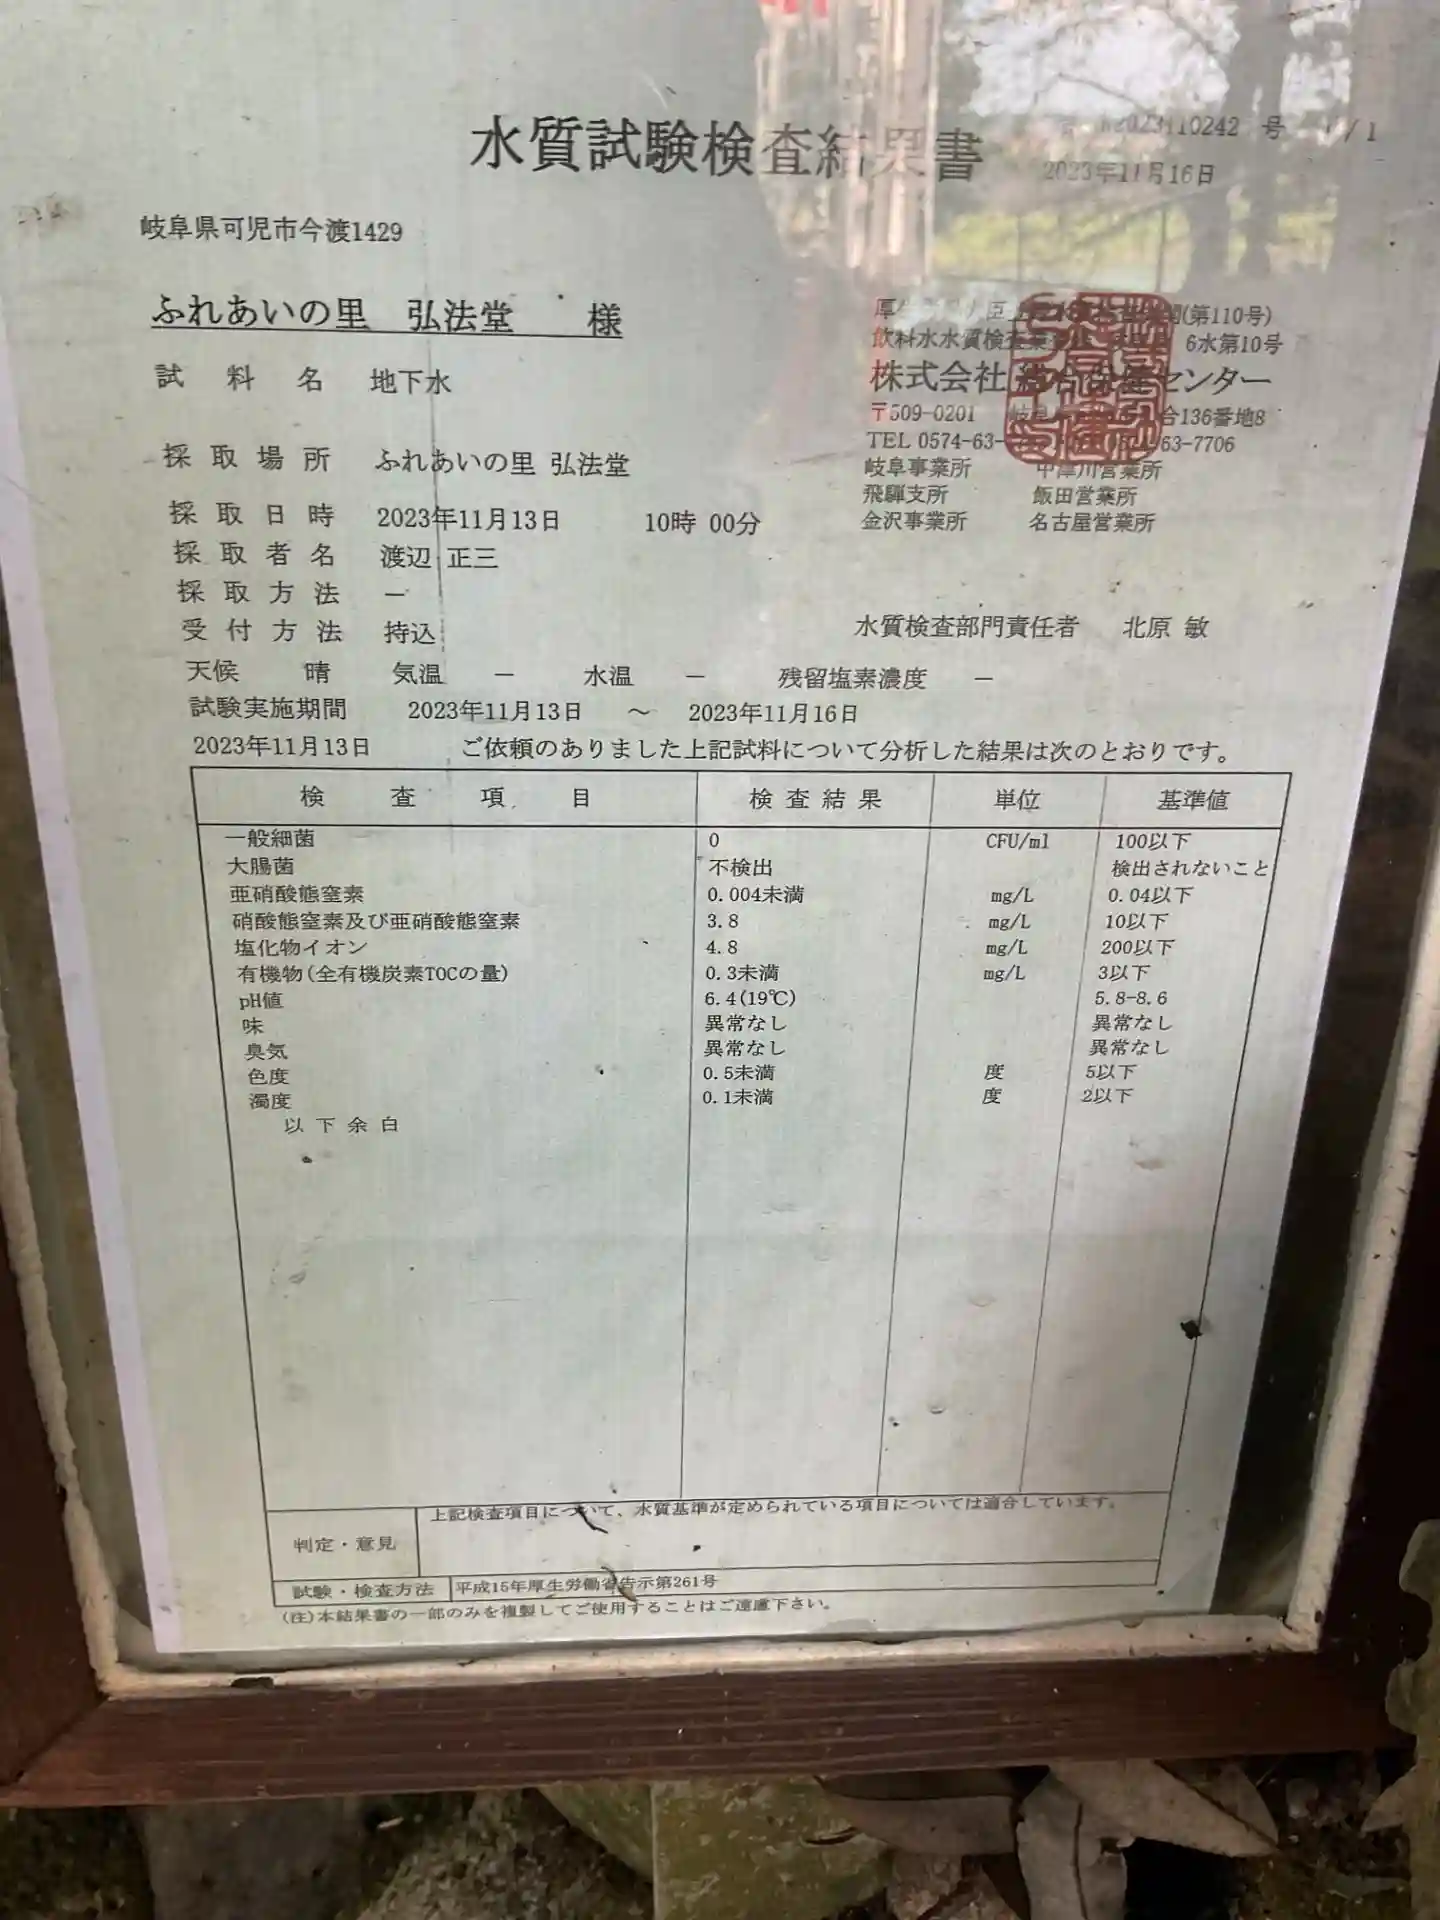 水質試験検査結果書
2023110242 号 1/1
2023年11月16日
岐阜県可児市今渡1429
ふれあいの里 弘法堂 様
(第110号)
飲料水水質検査 6水第10号
株式会社 総合保健センター
〒509-0201 136番地8
TEL 0574-63- 63-7706
岐阜事業所 中津川営業所
飛騨支所 飯田営業所
金沢事業所 名古屋営業所
試料名 地下水
採取場所 ふれあいの里 弘法堂
採取日時 2023年11月13日 10時 00分
採取者名 渡辺 正三
採取方法 −
受付方法 持込
水質検査部門責任者 北原 敏
天候 晴 気温 − 水温 − 残留塩素濃度 −
試験実施期間 2023年11月13日 ～ 2023年11月16日
2023年11月13日 ご依頼のありました上記試料について分析した結果は次のとおりです。
検査項目 検査結果 単位 基準値
一般細菌 0 CFU/ml 100以下
大腸菌 不検出 検出されないこと
亜硝酸態窒素 0.004未満 mg/L 0.04以下
硝酸態窒素及び亜硝酸態窒素 3.8 mg/L 10以下
塩化物イオン 4.8 mg/L 200以下
有機物(全有機炭素TOCの量) 0.3未満 mg/L 3以下
pH値 6.4(19℃) 5.8-8.6
味 異常なし 異常なし
臭気 異常なし 異常なし
色度 0.5未満 度 5以下
濁度 0.1未満 度 2以下
以下余白
判定・意見 上記検査項目について、水質基準が定められている項目については適合しています。
試験・検査方法 平成15年厚生労働省告示第261号
(注)本結果書の一部のみを複製してご使用することはご遠慮下さい。